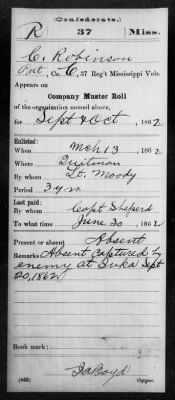 (Confederate.)
R 37 Miss.
C. Robinson
Pvt, Co. C, 37 Reg't Mississippi Vols.
Appears on
Company Muster Roll
of the organization named above,
for Sept & Oct, 1862
Enlisted:
When Mch 13, 1862
Where Quitman
By whom Lt. Moody
Period 3 yrs
Last paid:
By whom Capt Sheperd
To what time June 30, 1862
Present or absent Absent
Remarks Absent captured by
enemy at Iuka Sept
20, 1862
Book mark:
(642) Copyist.